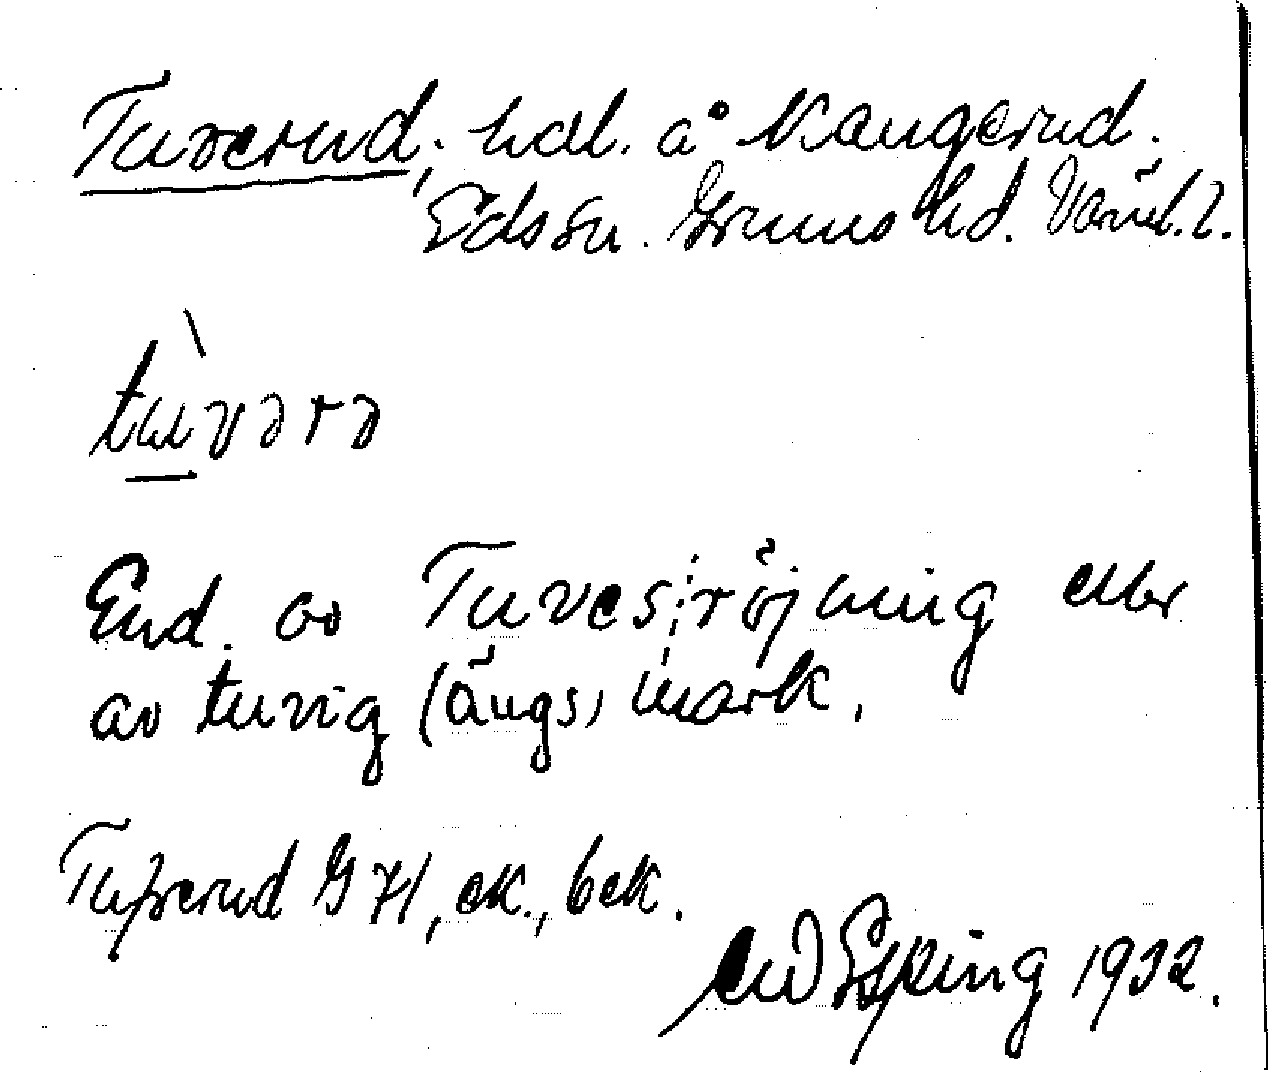 Tuverud, hdl. å Kangerud.
Edssn. Grums hd. Värml. l.
tùvərə
End. av Tuves röjning eller
av tuvig (ängs) mark.
Tufverud GK, ek., bek.
Espling 1932.